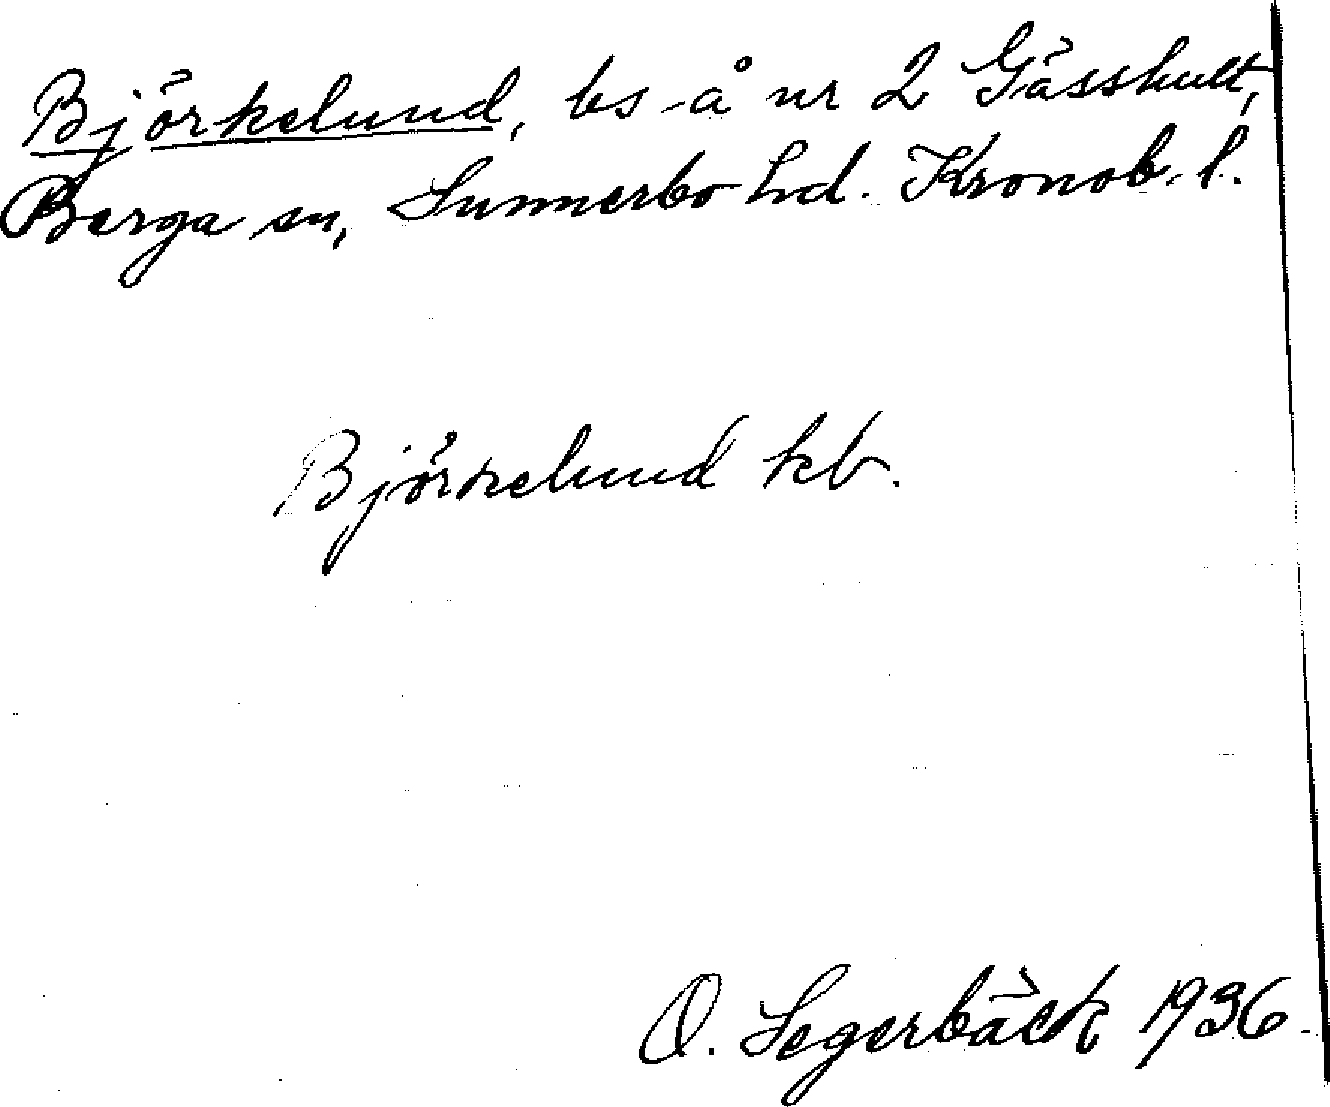 Björkelund, bs å nr 2 Gässhult,
Berga sn, Sunnerbo hd. Kronob. l.
Björkelund kb.
O. Segerbäck 1936